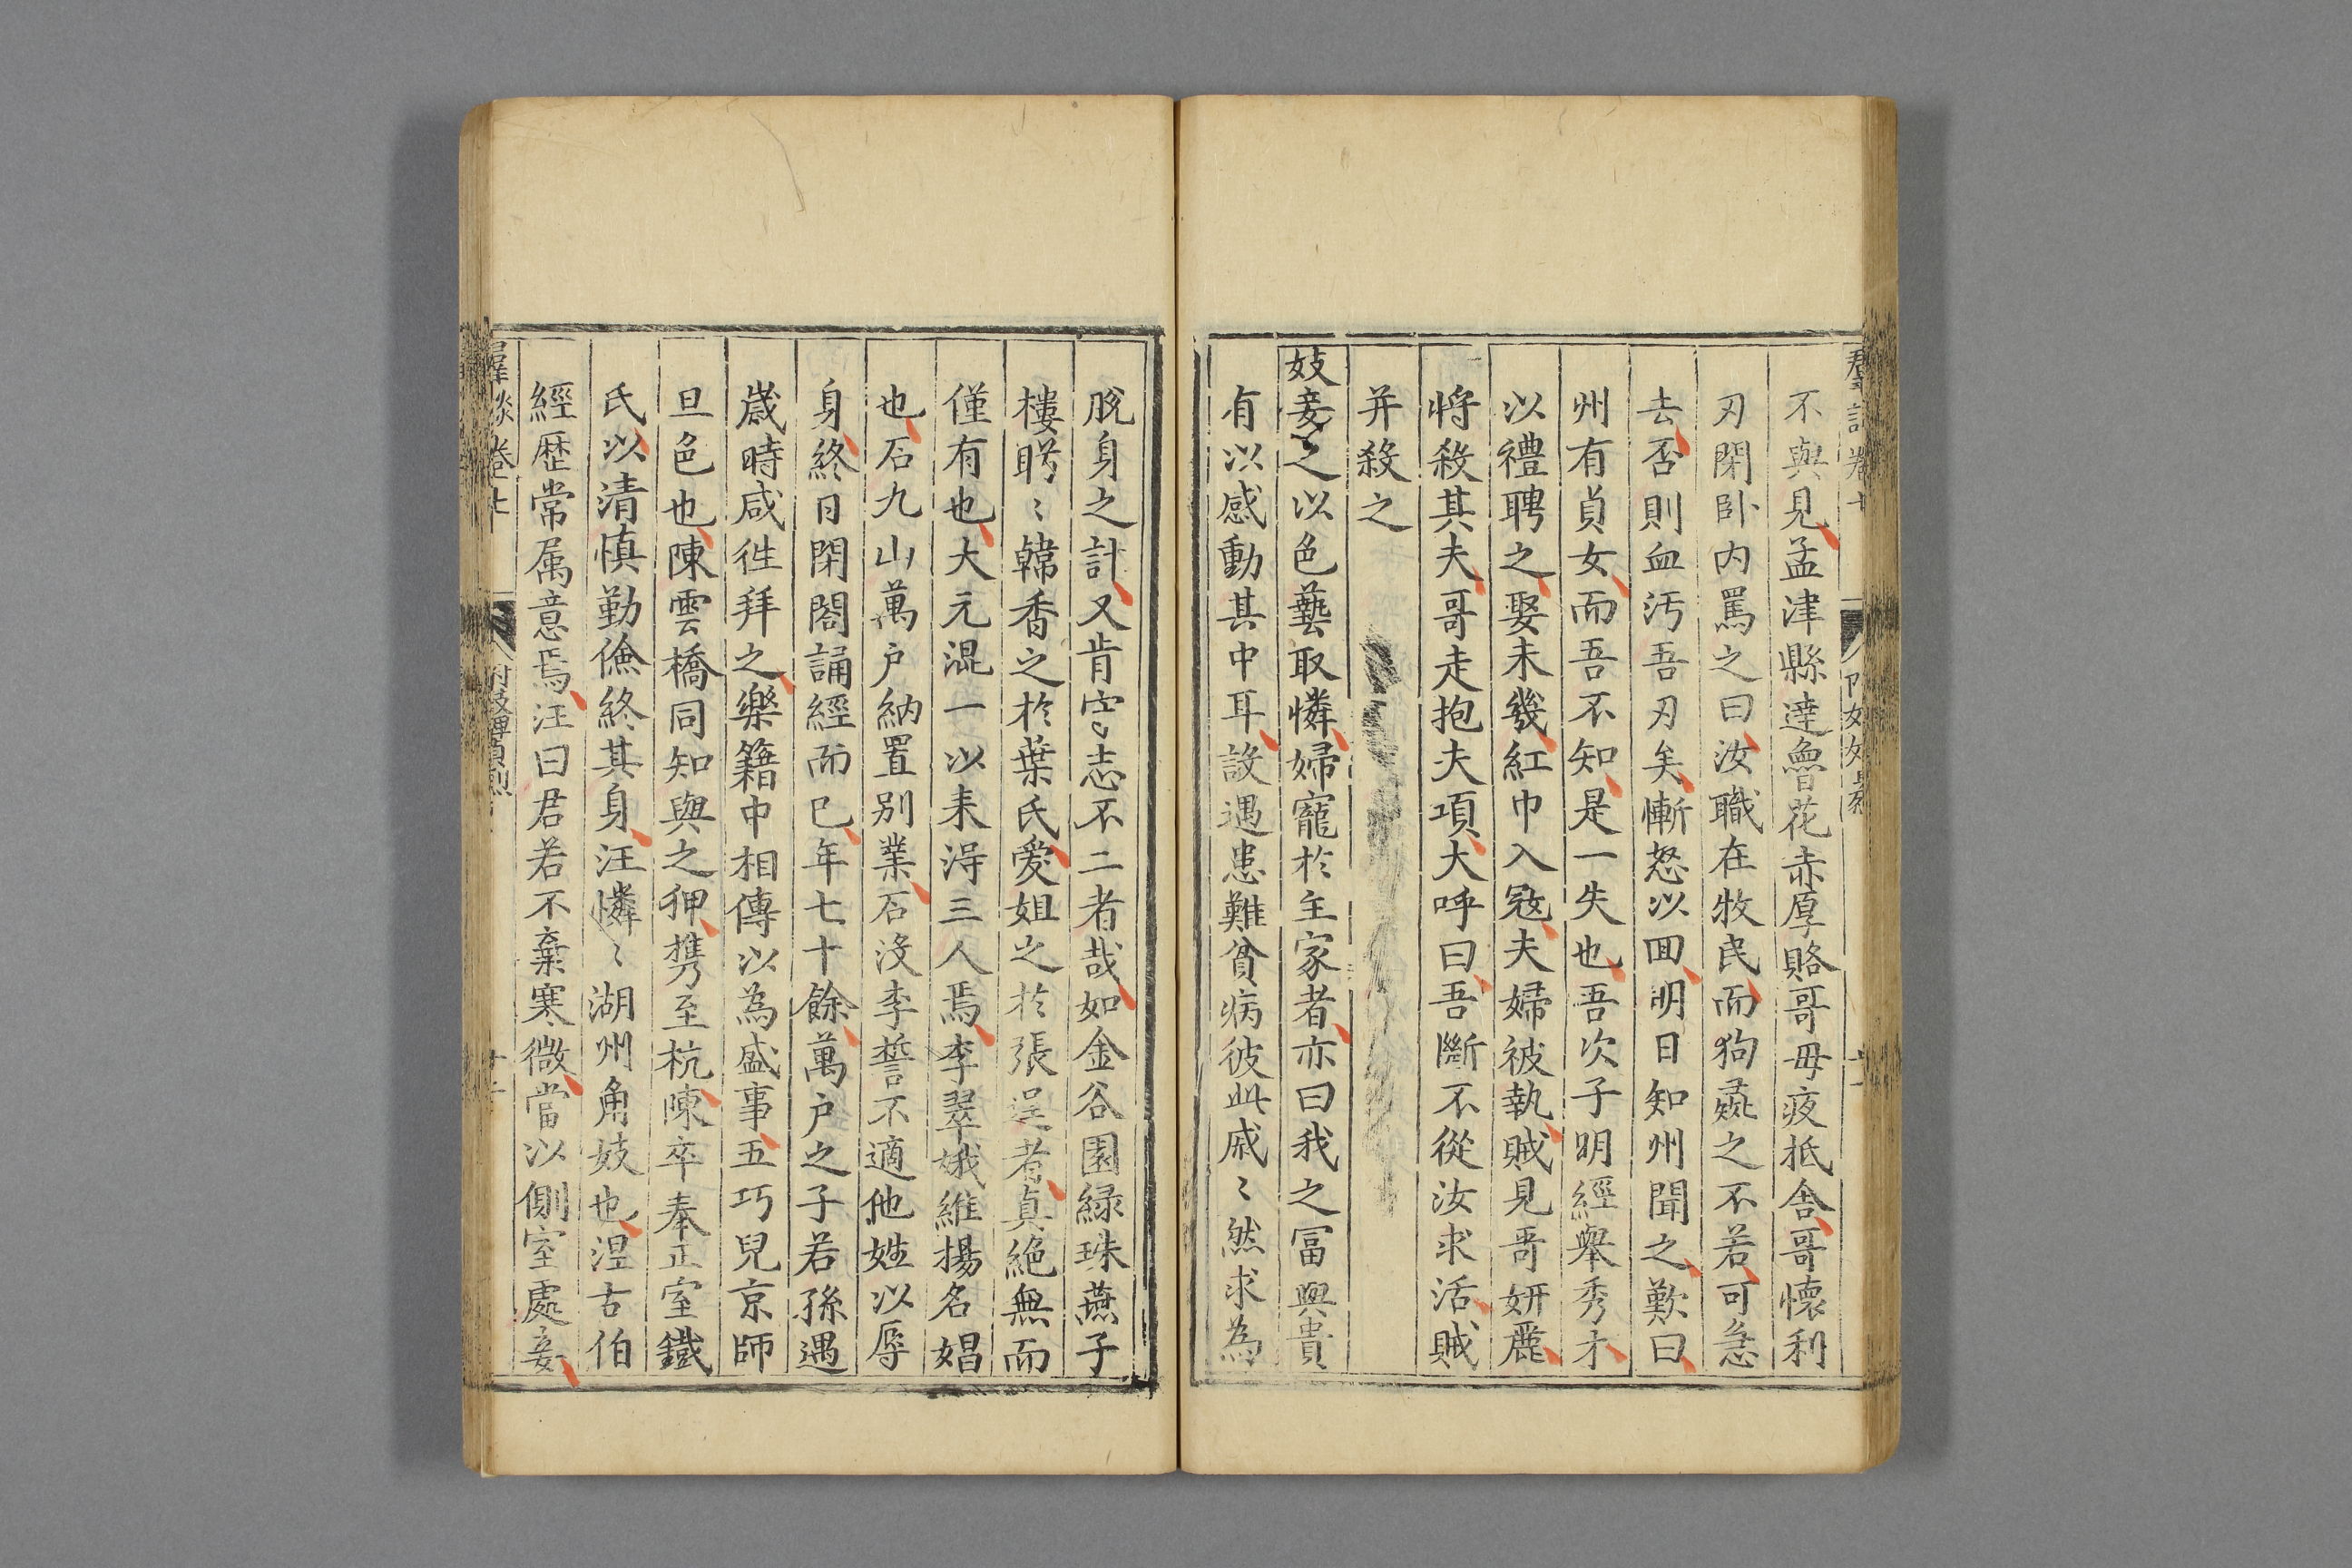 不與見孟津縣達魯花赤厚賂哥毋夜抵舎哥懷利
刃閑卧内罵之曰汝職在牧民而狗彘之不若可急
去否則血汚吾刃矣慚怒以囬明日知州聞之歎曰
州有貞女而吾不知是一失也吾次子明經舉秀才
以禮聘之娶未幾紅巾入冦夫婦被執賊見哥妍麗
将殺其夫哥走抱夫項大呼曰吾斷不從汝求活賊
并殺之
妓妾之以色藝取憐婦寵於主家者亦曰我之冨與貴
有以感動其中耳設遇患難貧病彼此戚〻然求為
脫身之計又肯守志不二者哉如金谷園緑珠燕子
樓盻〻韓香之於葉氏愛姐之於張逞者真絶無而
僅有也大元混一以来淂三人焉李翠娥維揚名娼
也石九山萬户納置别業石没李誓不適他姓以辱
身終日閉閣誦經而已年七十餘萬户之子若孫遇
歲時咸徃拜之樂籍中相傳以為盛事五巧兒京師
旦色也陳雲橋同知與之狎携至杭陳卒奉正室鐵
氏以清慎勤儉終其身汪憐〻湖州角妓也涅古伯
經歷常属意焉汪曰君若不棄寒微當以側室處妾
羣談卷十